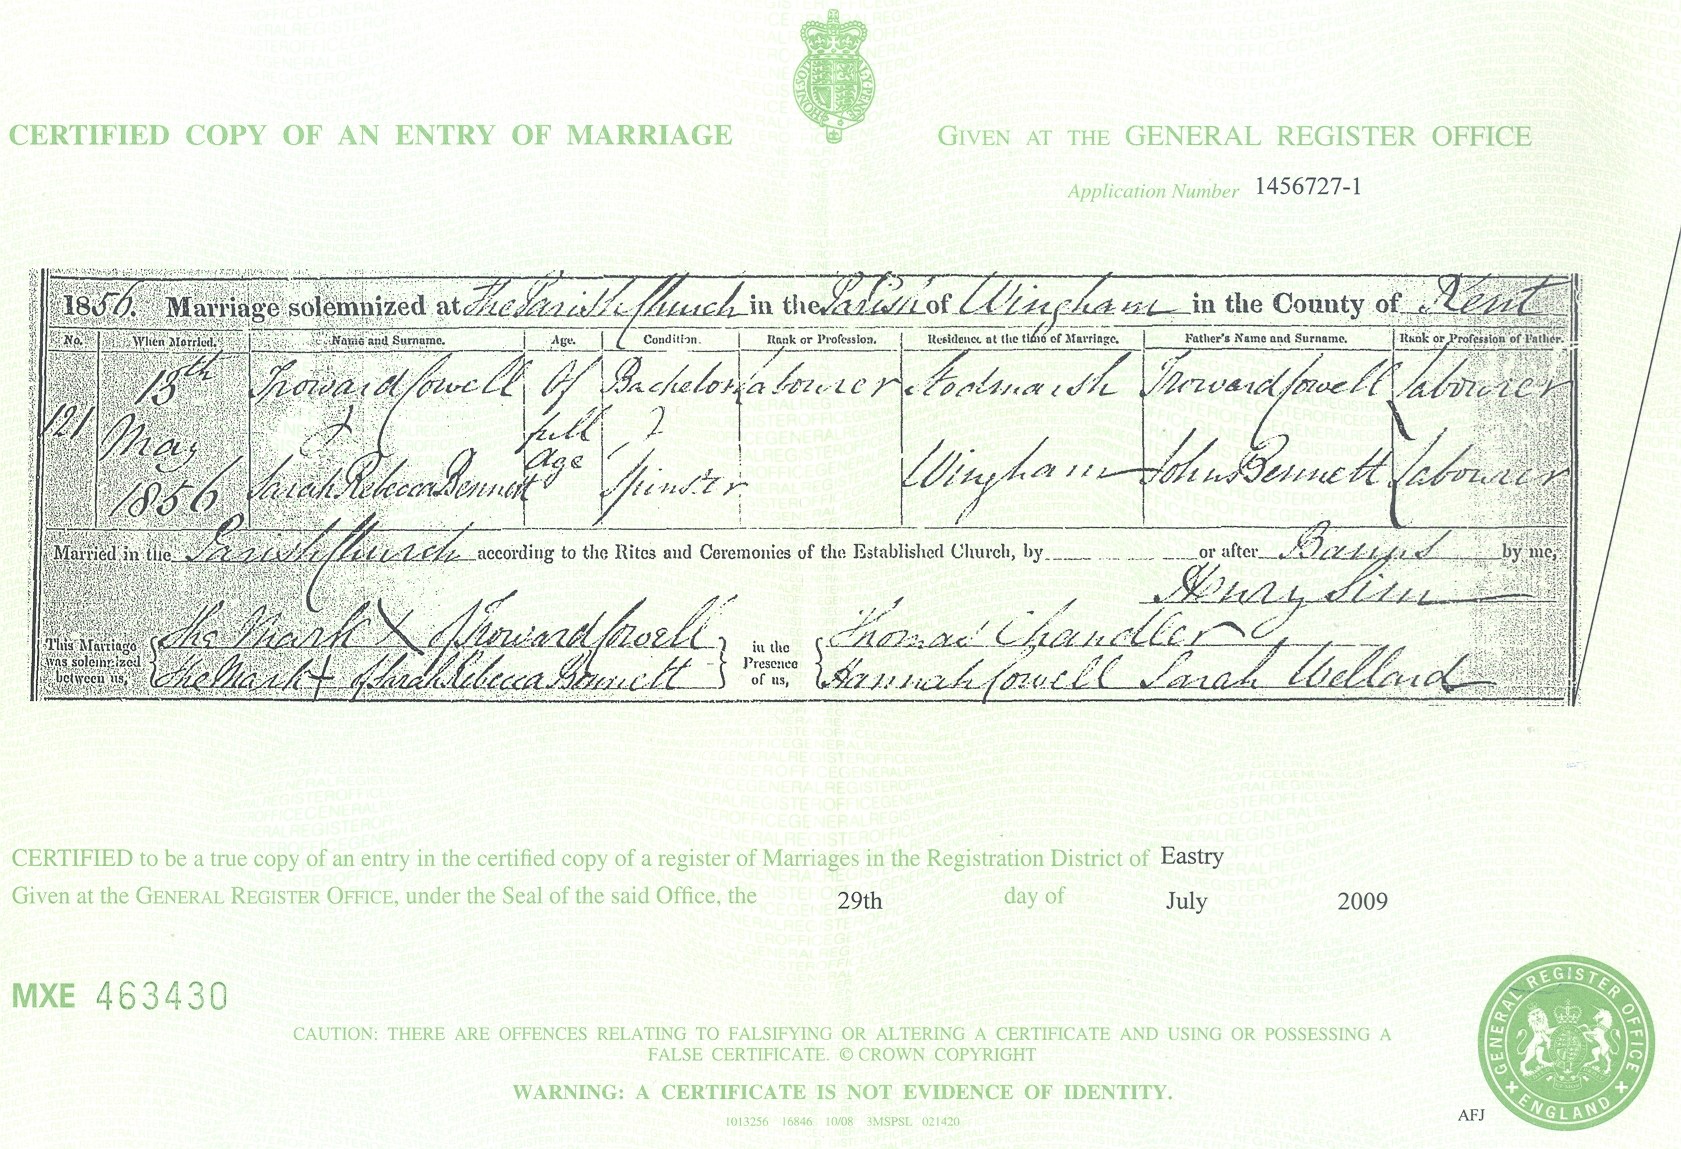 CERTIFIED COPY OF AN ENTRY OF MARRIAGE
GIVEN AT THE GENERAL REGISTER OFFICE
Application Number 1456727-1
1856. Marriage solemnized at The Parish Church in the Parish of Wingham in the County of Kent
No. When Married. Name and Surname. Age. Condition. Rank or Profession. Residence at the time of Marriage. Father's Name and Surname. Rank or Profession of Father.
121 13th May 1856 Troward Cowell Of full age Bachelor labourer Stodmarsh Troward Cowell labourer
Sarah Rebecca Bennett Spinster Wingham John Bennett labourer
Married in the Parish Church according to the Rites and Ceremonies of the Established Church, by or after Banns by me,
Henry Sim
This Marriage was solemnized between us, The Mark X of Troward Cowell in the Presence of us, Thomas Chandler
The Mark + of Sarah Rebecca Bennett Hannah Cowell Sarah Welland
CERTIFIED to be a true copy of an entry in the certified copy of a register of Marriages in the Registration District of Eastry
Given at the GENERAL REGISTER OFFICE, under the Seal of the said Office, the 29th day of July 2009
MXE 463430
CAUTION: THERE ARE OFFENCES RELATING TO FALSIFYING OR ALTERING A CERTIFICATE AND USING OR POSSESSING A
FALSE CERTIFICATE. © CROWN COPYRIGHT
WARNING: A CERTIFICATE IS NOT EVIDENCE OF IDENTITY.
1013256 16846 10/08 3MSPSL 021420
AFJ
GENERAL REGISTER OFFICE
ENGLAND